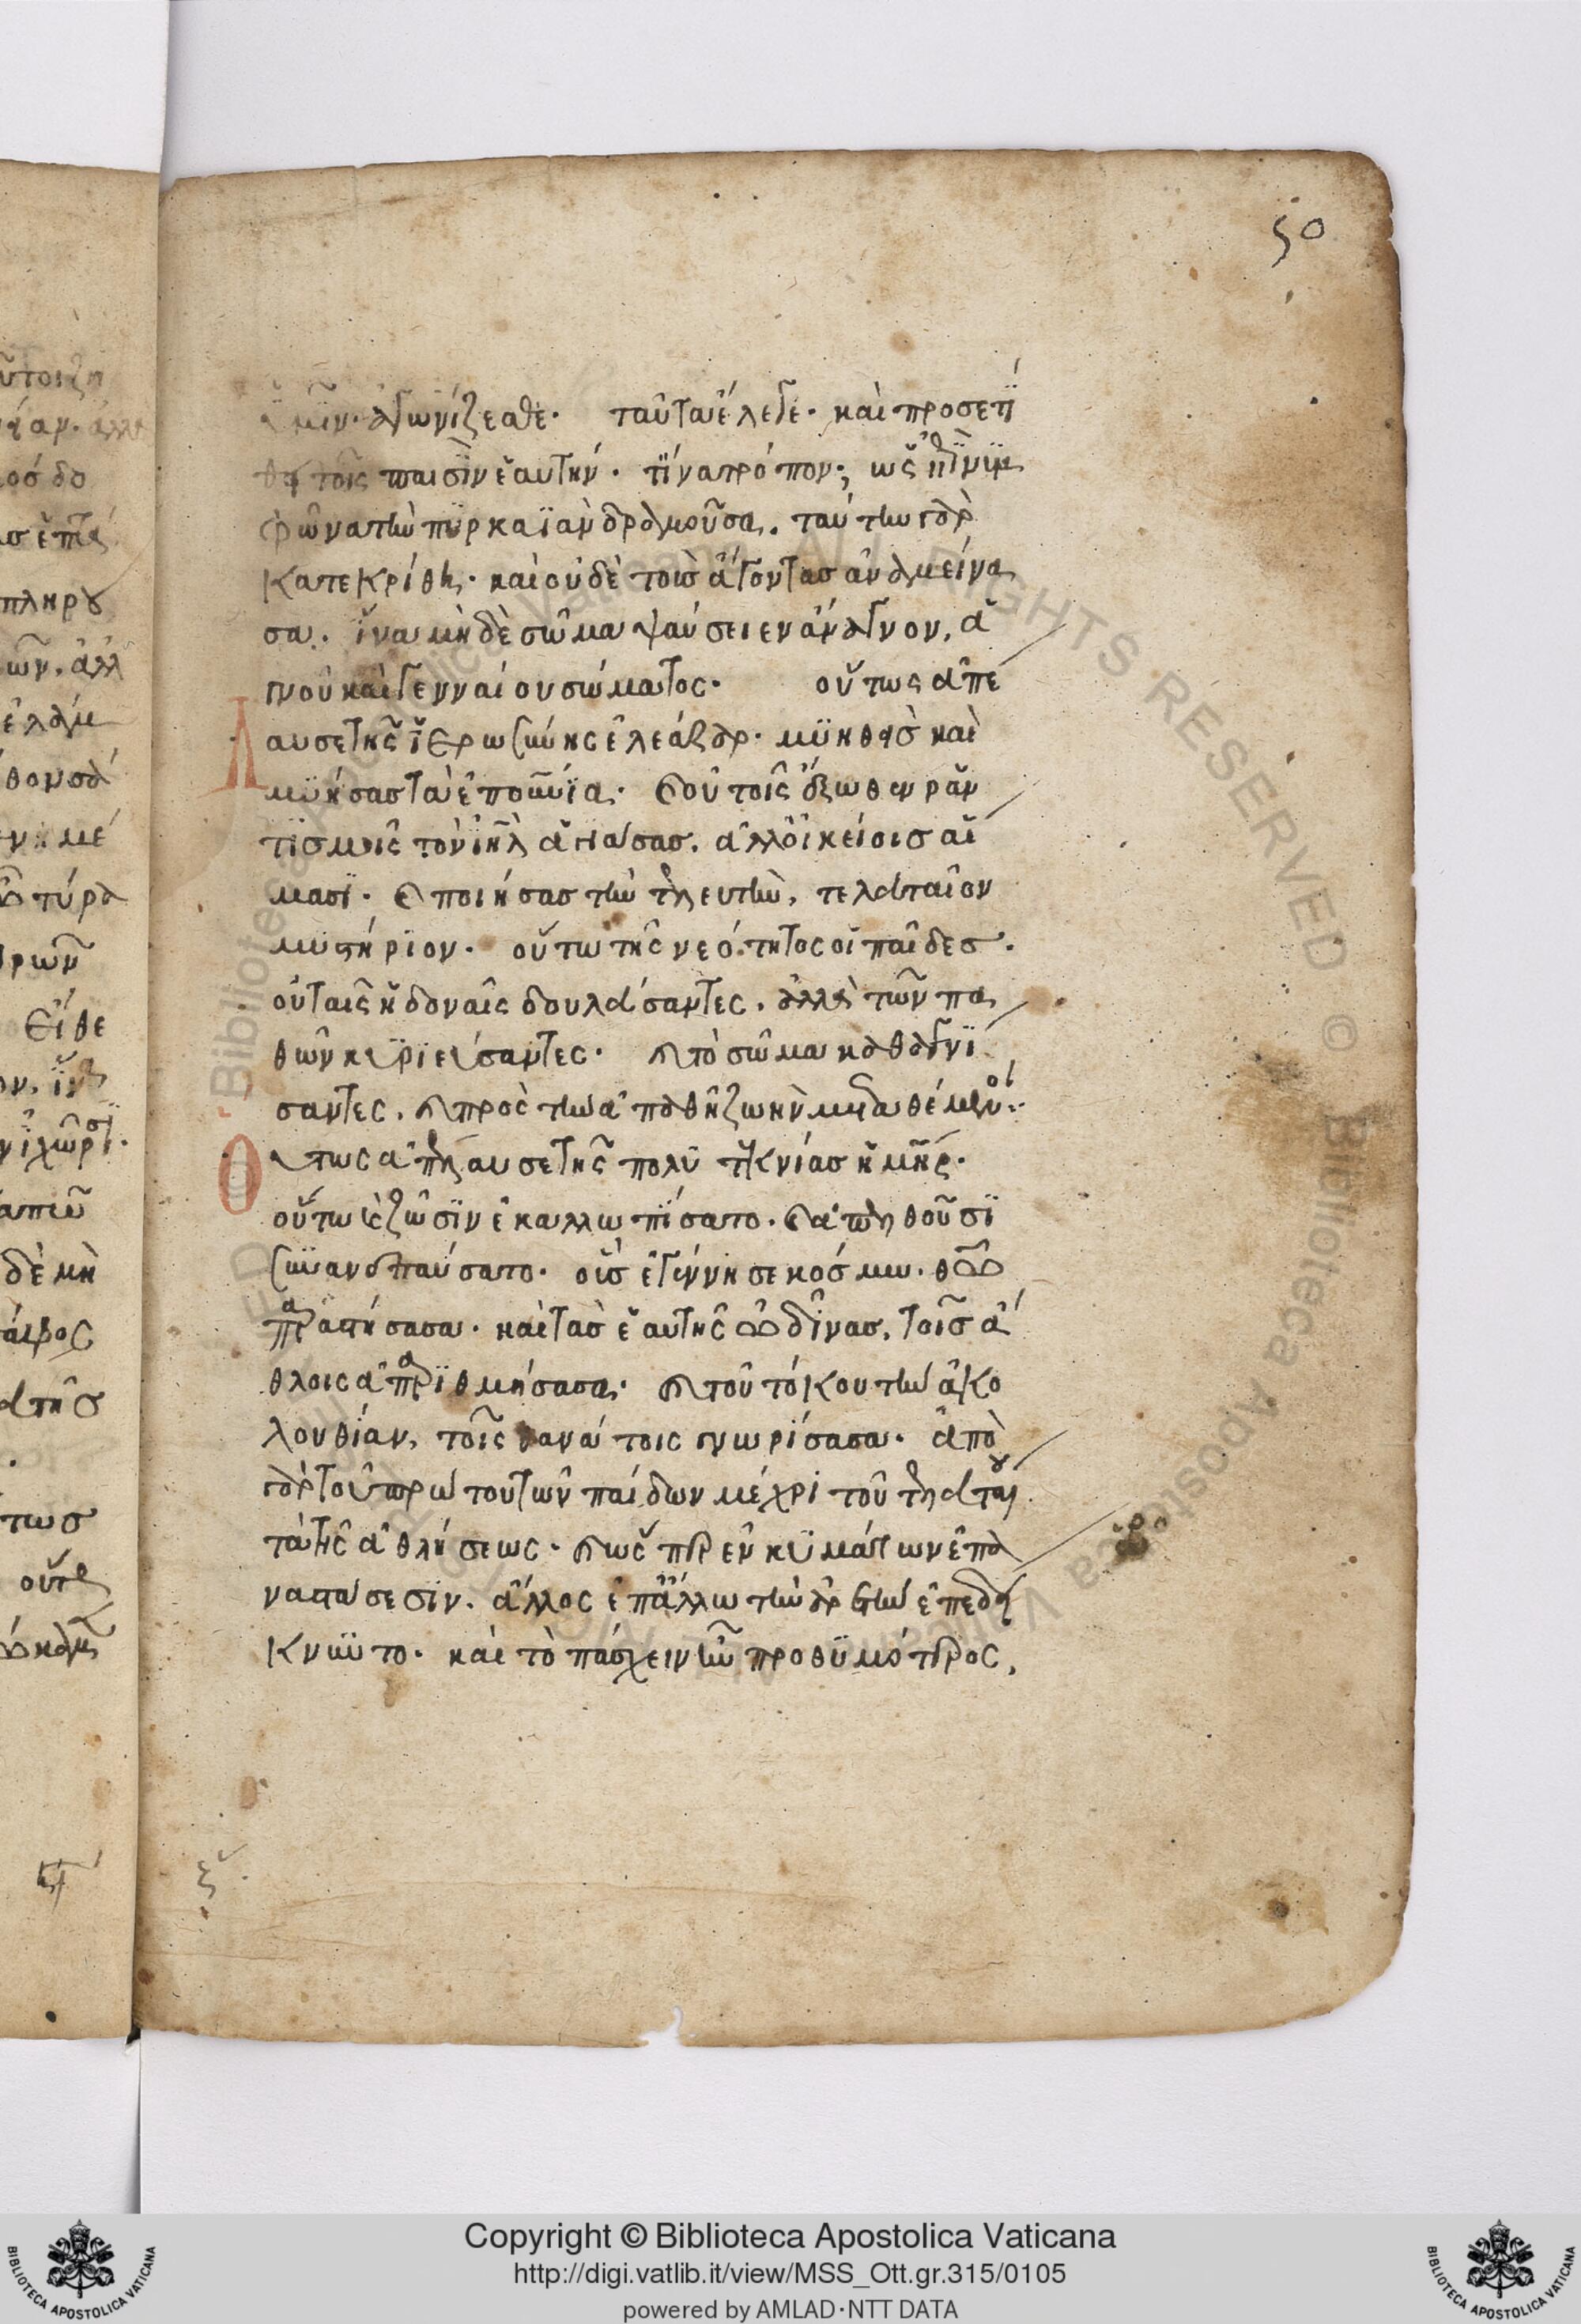 50
ἡμῖν ἀγωνίζεσθε· ταῦτα ἔλεγε· καὶ προσετί
θει τοῖς παισὶν ἑαυτήν· τίνα τρόπον; ὡς ἐπὶ νυμ
φῶνα τὴν πυρκαϊὰν δραμοῦσα. ταύτην γὰρ
κατεκρίθη· καὶ οὐδὲ τοὺς ἄγοντας ἀναμείνα
σα. ἵνα μὴ δὲ σῶμα ψαύσειεν ἄναγνον, ἁ
γνοῦ καὶ γενναίου σώματος· οὕτως ἀπέ
λαυσε τῆς ἱερωσύνης ἐλεάζαρ· μυηθεὶς καὶ
μυήσας τὰ ἐπουράνια· καὶ οὐ τοῖς ἔξωθεν ῥαν
τισμοῖς τὸν ἰηλ ἁγιάσας. ἀλλ' οἰκείοις αἵ
μασι· καὶ ποιήσας τὴν τελευτὴν, τελευταῖον
μυστήριον· οὕτω τῆς νεότητος οἱ παῖδες·
οὐ ταῖς ἡδοναῖς δουλεύσαντες. ἀλλὰ τῶν πα
θῶν κυριεύσαντες· καὶ τὸ σῶμα καθαγνί
σαντες. καὶ πρὸς τὴν ἀπαθῆ ζωὴν μεταθέμενοι·
Οὕτως ἀπέλαυσε τῆς πολυτεκνίας ἡ μηρ·
οὕτω καὶ ζῶσιν ἐκαλλωπίσατο· καὶ ἀπελθοῦσι
συνανεπαύσατο· οὓς ἐγέννησε κόσμω· θῶ
παραστήσασα· καὶ τὰς ἑαυτῆς ὠδῖνας, τοῖς ἄ
θλοις ἀπαριθμήσασα· καὶ τοῦ τόκου τὴν ἀκο
λουθίαν, τοῖς θανάτοις γνωρίσασα· ἀπὸ
γὰρ τοῦ πρώτου τῶν παίδων μέχρι τοῦ τελευταίου
τὰ τῆς ἀθλήσεως· καὶ ὥσπερ ἐν κυμάτων ἐπα
ναστάσεσιν. ἄλλος ἐπ' ἄλλω τὴν ἀρετὴν ἐπεδεί
κνυτο· καὶ τὸ πάσχειν ἦν προθυμότερος,
Copyright © Biblioteca Apostolica Vaticana
http://digi.vatlib.it/view/MSS_Ott.gr.315/0105
powered by AMLAD·NTT DATA
BIBLIOTECA APOSTOLICA VATICANA
BIBLIOTECA APOSTOLICA VATICANA